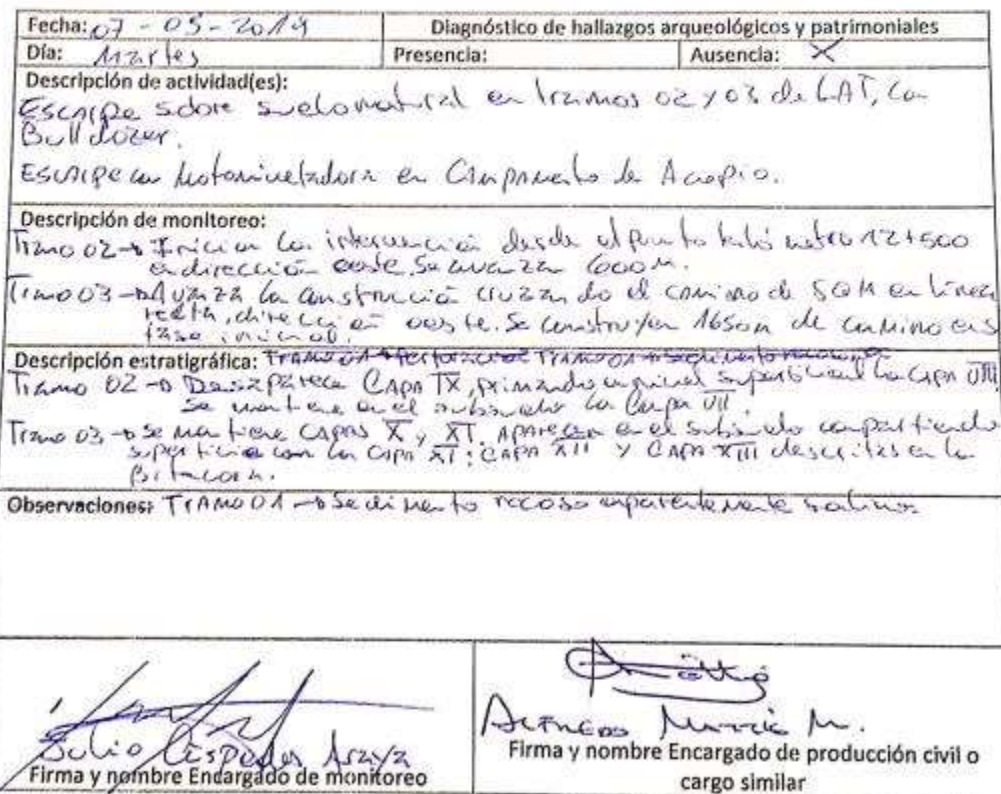 Fecha: 07 - 05 - 2019 Diagnóstico de hallazgos arqueológicos y patrimoniales
Día: Martes Presencia: Ausencia: X
Descripción de actividad(es):
Escarpe sobre suelo natural en tramos 02 y 03 de LAT, con
Bulldozer.
Escarpe con Motoniveladora en Campamento de Acopio.
Descripción de monitoreo:
Tramo 02 → Inician la intervención desde el punto kilómetro 12+500
en dirección oeste. Se avanzan 600 m.
Tramo 03 → Avanza la construcción cruzando el camino de SQM en línea
recta, dirección oeste. Se construyen 1650m de camino en su
fase inicial.
Descripción estratigráfica:
Tramo 02 → Desaparece Capa IX, primando a nivel superficial la capa VIII.
Se mantiene en el subsuelo la Capa VII.
Tramo 03 → Se mantiene capas X y XI. Aparecen en el subsuelo compartiendo
superficie con la capa XI: capa XII y capa XIII descritas en la
Bitácora.
Observaciones: Tramo 01 → Sedimento rocoso aparentemente salino
Julio Céspedes Araya
Firma y nombre Encargado de monitoreo
Alfredo M.
Firma y nombre Encargado de producción civil o
cargo similar